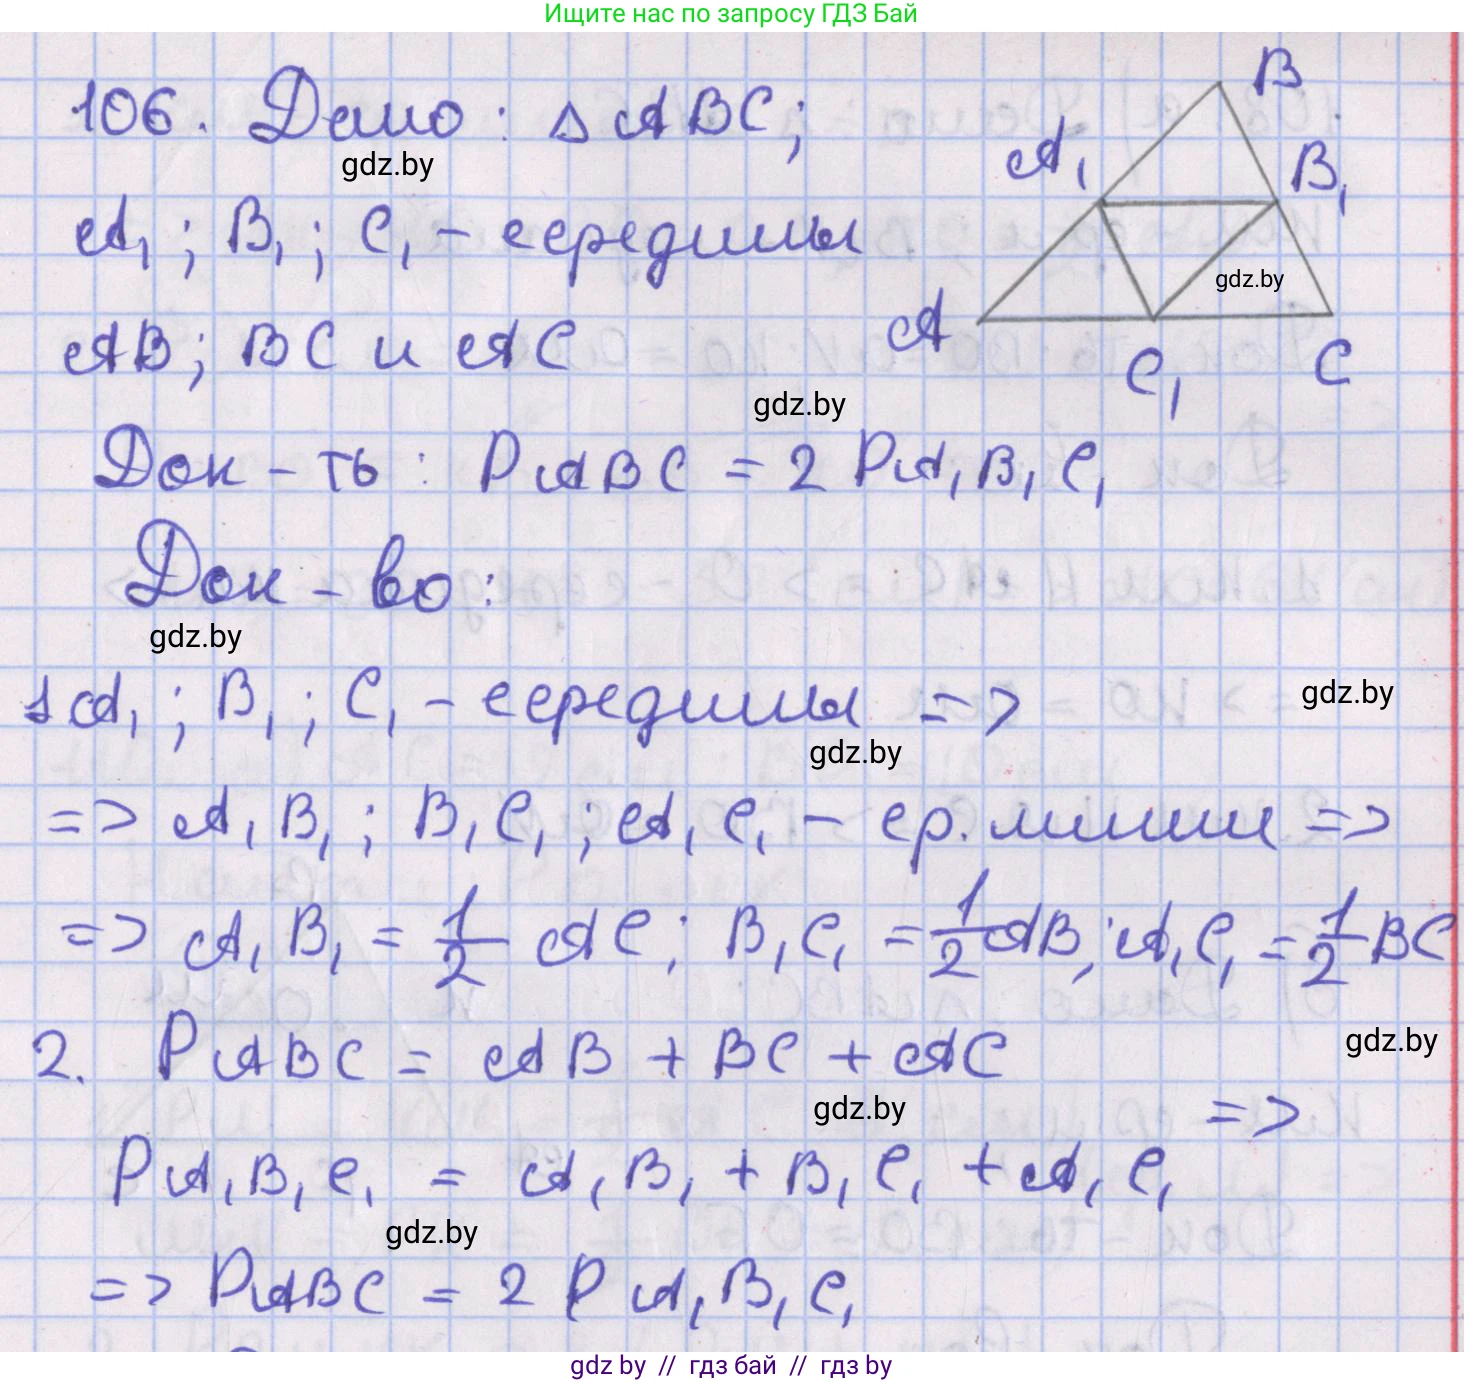 Ищите нас по запросу ГДЗ Бай
106. Дано: △ABC;
gdz.by
A₁; B₁; C₁ - середины
AB; BC и AC
B
A₁
B₁
gdz.by
A
C₁
C
gdz.by
Док-ть: PABC = 2 PA₁B₁C₁
Док-во:
gdz.by
1 A₁; B₁; C₁ - середины =>
gdz.by
gdz.by
=> A₁B₁; B₁C₁; A₁C₁ - ср. линии =>
=> A₁B₁ = 1/2 AC; B₁C₁ = 1/2 AB; A₁C₁ = 1/2 BC
2. PABC = AB + BC + AC
gdz.by
gdz.by
=>
PA₁B₁C₁ = A₁B₁ + B₁C₁ + A₁C₁
gdz.by
=> PABC = 2 PA₁B₁C₁
gdz by // гдз бай // гдз by